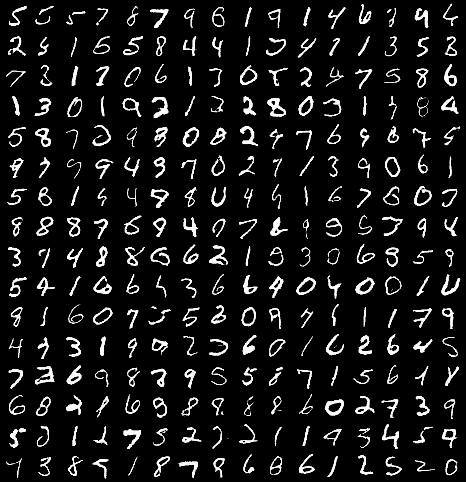 5 5 5 7 8 7 9 6 1 9 1 4 6 3 9 4
2 5 1 5 5 8 4 4 1 5 4 7 1 3 5 8
7 3 1 7 0 6 1 3 0 5 2 4 7 5 8 6
1 3 0 1 9 2 1 3 2 8 0 3 1 7 8 4
5 8 7 2 9 8 0 8 2 9 7 6 9 8 7 5
9 7 9 9 4 9 7 0 2 7 1 3 9 0 6 1
5 8 1 5 4 9 8 0 4 9 1 6 7 8 0 7
8 8 8 7 6 9 4 0 7 8 9 9 5 7 9 4
3 7 4 8 8 6 6 2 1 9 3 0 6 9 5 9
5 4 1 6 6 5 3 6 6 9 0 4 0 0 1 6
8 1 6 0 7 5 5 2 0 9 7 6 1 1 7 9
4 7 3 1 9 9 2 2 6 0 1 6 2 6 4 5
7 2 6 9 8 8 9 5 5 8 7 1 5 6 1 4
6 8 2 1 6 9 8 9 8 8 6 0 2 7 3 9
5 0 1 2 7 3 2 2 2 1 1 9 3 4 5 9
7 3 8 9 1 8 7 8 6 8 6 1 2 5 2 0